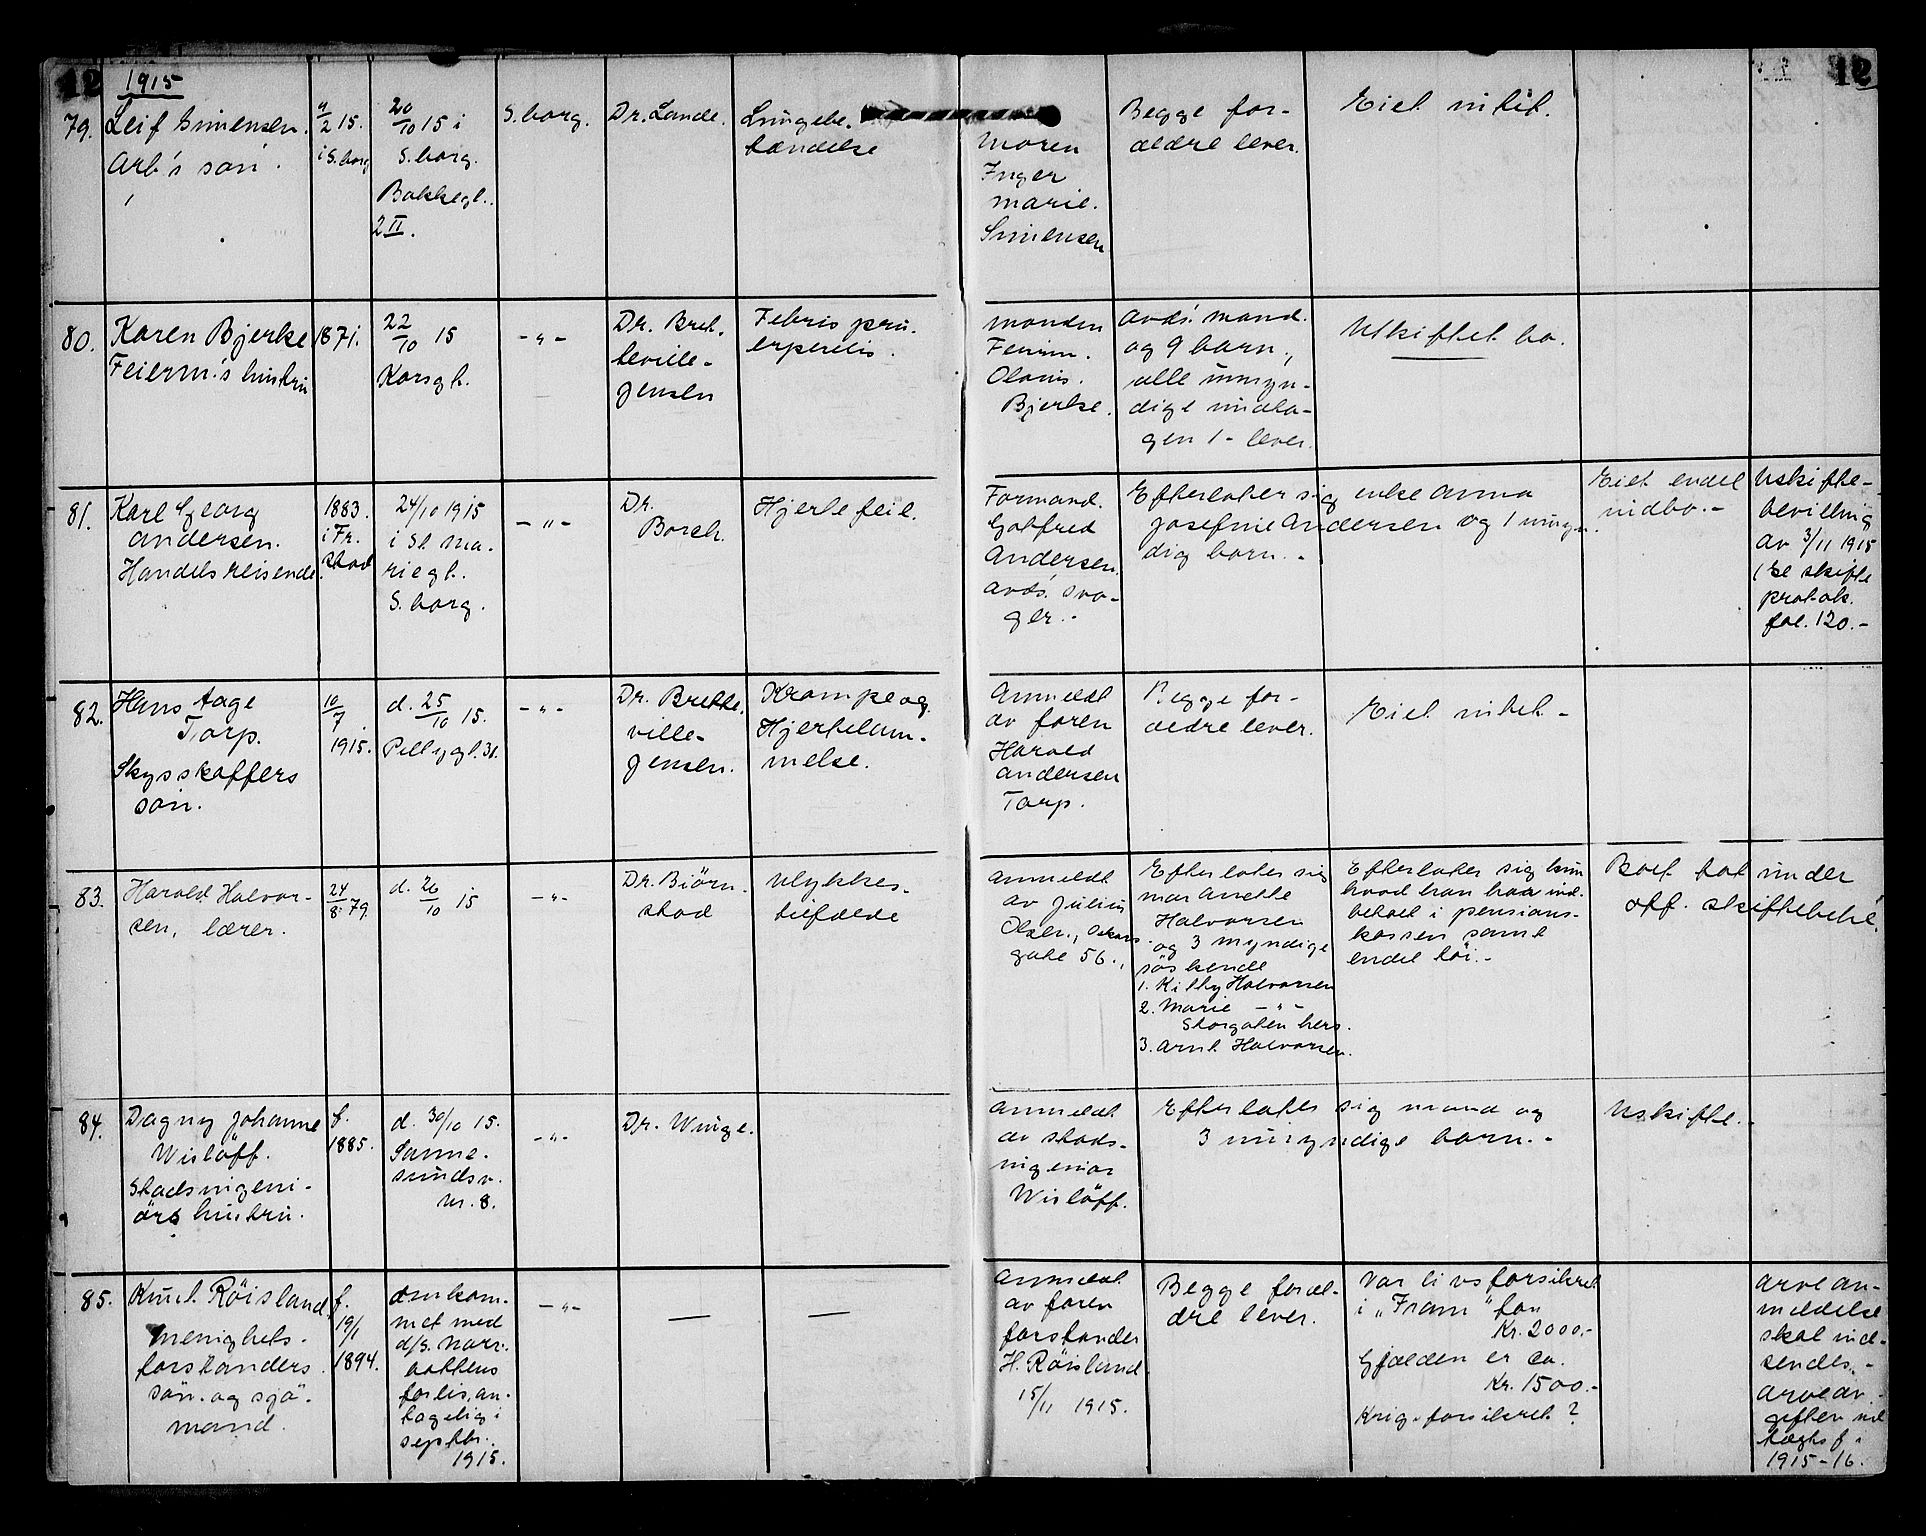 12
12
1915
79.
Leif Simensen.
Arb's sön.
4/2 15.
i S.borg
20/10 15 i
S.borg.
Bakkegt.
2 II.
S.borg.
Dr. Lande.
Lungebe-
tændelse
Moren
Inger
Marie.
Simensen
Begge for-
ældre lever.
Eiet intet.
80.
Karen Bjerke
Feierm.'s hustru
1871.
22/10 15
Korsgt.
-"-
Dr. Bret-
teville-
Jensen
Febris pru-
erperelis.
Manden
Feierm.
Olavus.
Bjerke.
Avds. mand.
og 9 barn,
alle umyn-
dige undta-
gen 1 - lever.
Uskiftet bo.
81.
Karl Georg
Andersen.
Handelsreisende.
1883.
i Fr.
stad
24/10 1915
i St. Ma-
riegt.
S.borg.
-"-
Dr.
Borch.
Hjertefeil.
Formand.
Gotfred
Andersen.
avds. svo-
ger.-
Efterlater sig enke Anna
Josefine Andersen og 1 umyn-
dig barn.-
Eiet endel
indbo.-
Uskifte-
bevilling
av 3/11 1915
(se skifte
protok.
fol. 120.-
82.
Hans Aage
Torp.
Skysskaffers
sön.
10/7
1915.
d. 25/10 15.
Pellygt. 31.
-"-
Dr. Brette-
ville-
Jensen.
Krampe og
Hjertelam-
melse.
Anmeldt
av faren
Harald
Andersen
Torp.
Begge for-
ældre lever.
Eiet intet-
83.
Harald Halvor-
sen, lærer.
24/8 79.
d. 26/10 15
-"-
Dr. Biörn-
stad
Ulykkes-
tilfælde
Anmeldt
av Julius
Olsen, Oskars-
gate 56.,
Efterlater sig
mor Anette
Halvorsen
og 3 myndige
söskende
1. Kitty Halvorsen
2. Marie -"-
Storgaten hers.
3. Arnt. Halvorsen.
Efterlater sig kun
hvad han har ind-
betalt i pensions-
kassen samt
endel töi.-
Boet tat under
off. skiftebeh.
84.
Dagny Johanne
Wislöff.
Stadsingeni-
örs hustru.
f.
1885.
d. 30/10 15.
Sanne-
sundsv.
nr. 8.
-"-
Dr. Winge.
Anmeldt
av stads-
ingeniör
Wislöff.
Efterlater sig mand og
3 umyndige barn.-
Uskifte.-
85.
Knut Röisland,
menighets-
forstanders
sön og sjö-
mand.
f.
19/1
1894.
Omkom-
met med
d/s. Norr-
bottens
forlis, an-
tagelig i
septbr.
1915.
-"-
—
—
Anmeldt
av faren
forstander
H. Röisland
15/11 1915.
Begge foræl-
dre lever.
Var livsforsikret
i "Fram" for
Kr. 2000.-
Gjælden er ca.
Kr. 1500.-
Krigsforsikret?
Arvean-
meldelse
skal ind-
sendes.-
Arveav-
giften ind
1915-16.